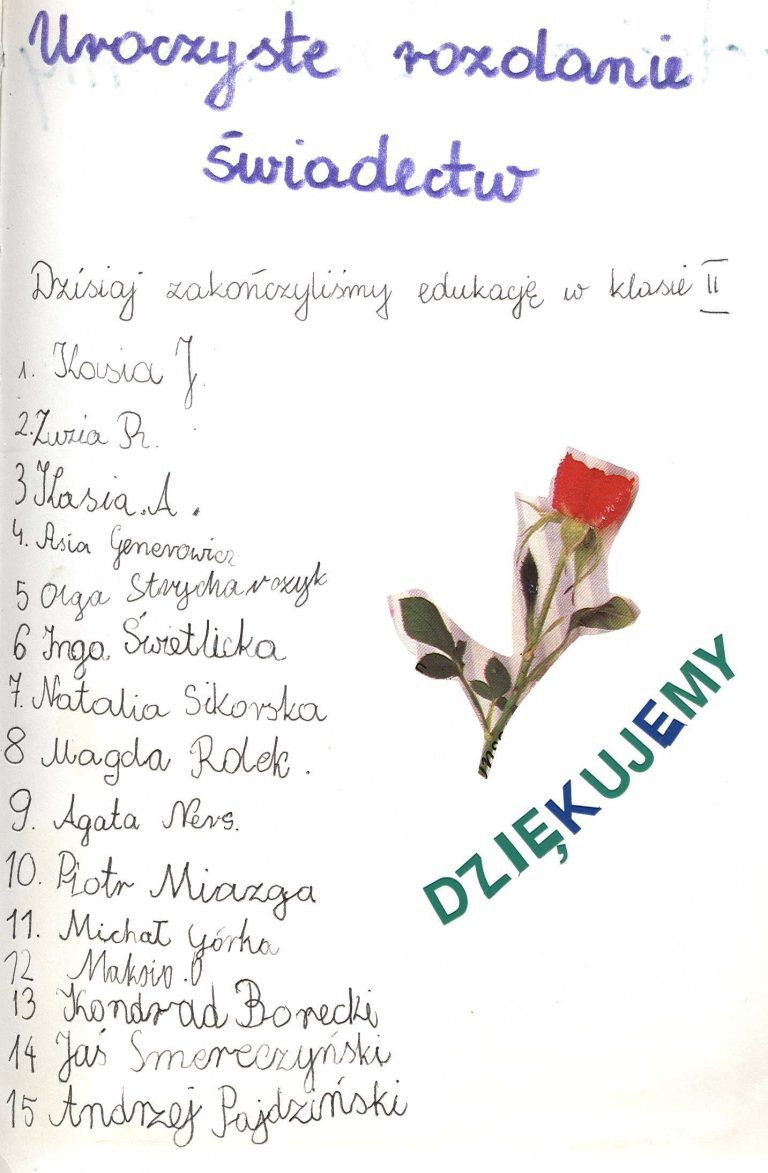 Uroczyste rozdanie
świadectw
Dzisiaj zakończyliśmy edukację w klasie II
1. Kasia J.
2. Zuzia R.
3 Kasia. A.
4. Asia Generowicz
5 Olga Strycharczyk
6 Inga Świetlicka
7. Natalia Sikorska
8 Magda Rolek.
9. Agata Ners.
10. Piotr Miazga
11. Michał Górka
12 Maksio. O
13 Kondrad Borecki
14 Jaś Smereczyński
15 Andrzej Pajdziński
DZIĘKUJEMY